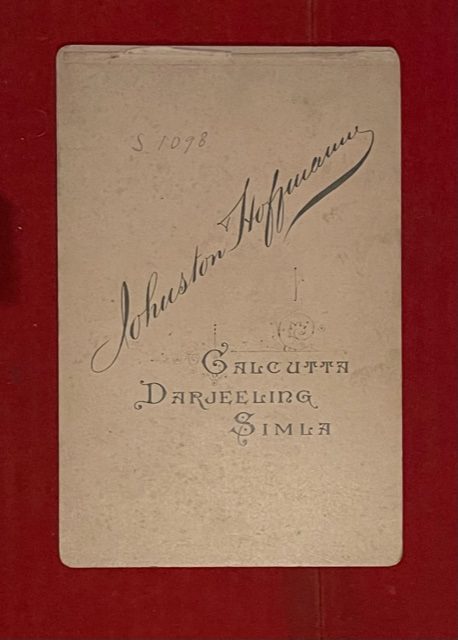 S 1098
Johnston & Hoffmann
CALCUTTA
DARJEELING
SIMLA